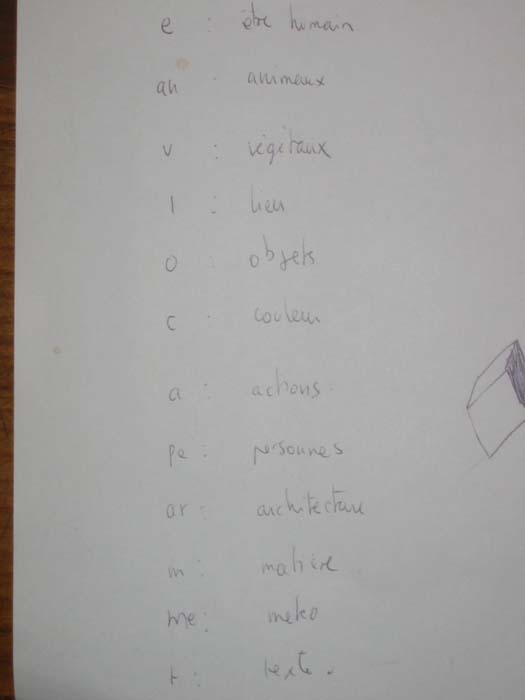 e : être humain
an : animaux
v : végétaux
l : lieu
o : objets
c : couleur
a : actions
pe : personnes
ar : architecture
m : matière
me : météo
t : texte